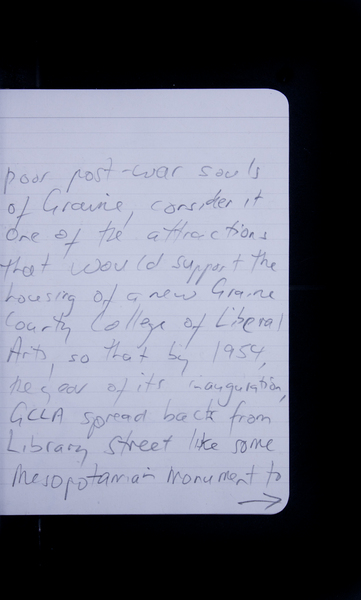 poor post-war souls
of Graine, consider it
one of the attractions
that would support the
housing of a new Graine
County College of Liberal
Arts, so that by 1954,
the year of its inauguration,
GCLA spread back from
Library Street like some
Mesopotamian monument to
→